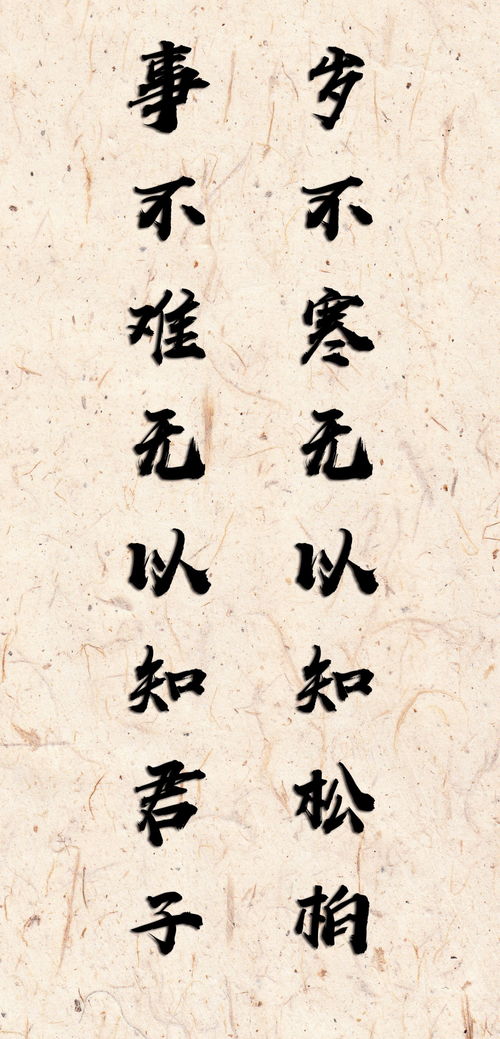 岁不寒无以知松柏
事不难无以知君子